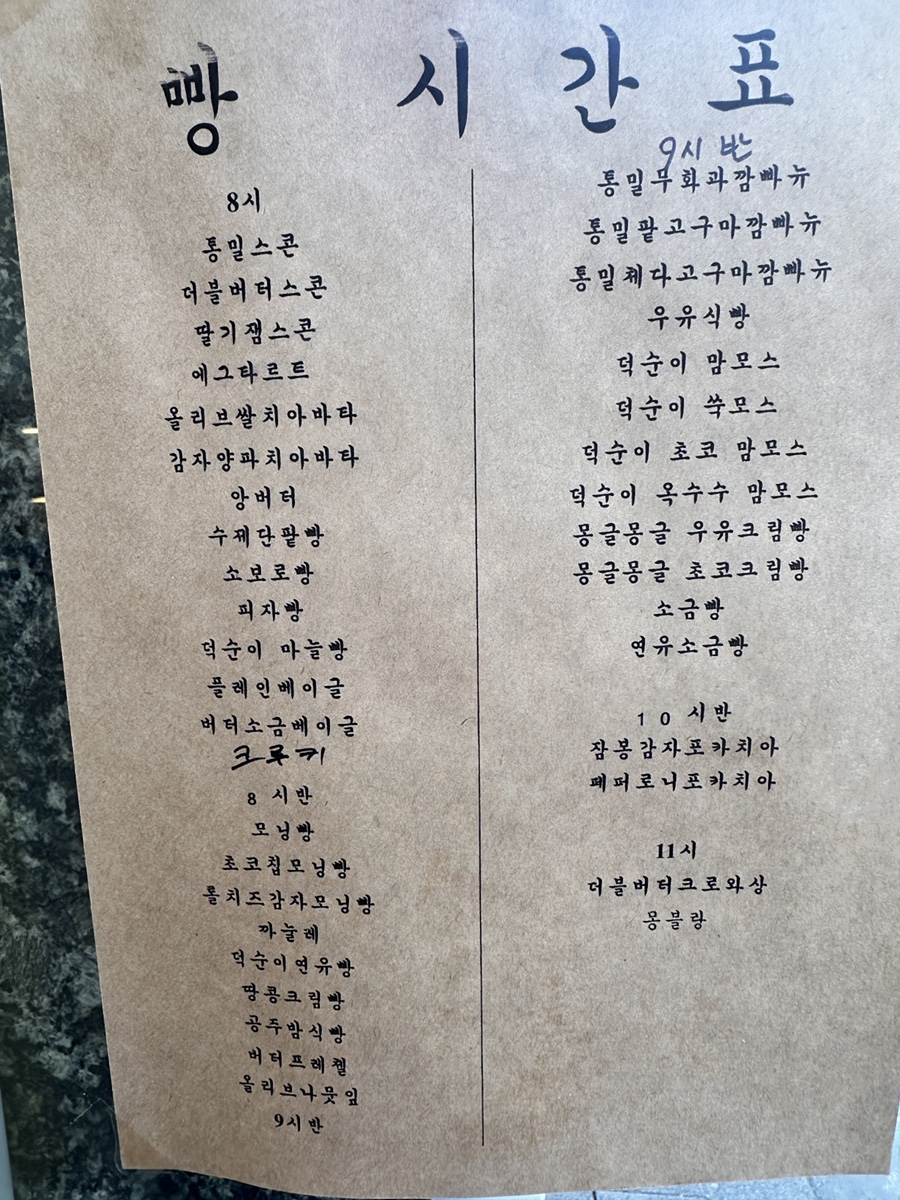 빵 시 간 표
8시
통밀스콘
더블버터스콘
딸기잼스콘
에그타르트
올리브쌀치아바타
감자양파치아바타
앙버터
수제단팥빵
소보로빵
피자빵
덕순이 마늘빵
플레인베이글
버터소금베이글
크루키
8 시반
모닝빵
초코칩모닝빵
롤치즈감자모닝빵
까눌레
덕순이연유빵
땅콩크림빵
공주밤식빵
버터프레첼
올리브나뭇잎
9시반
9시 반
통밀무화과깜빠뉴
통밀팥고구마깜빠뉴
통밀체다고구마깜빠뉴
우유식빵
덕순이 맘모스
덕순이 쑥모스
덕순이 초코 맘모스
덕순이 옥수수 맘모스
몽글몽글 우유크림빵
몽글몽글 초코크림빵
소금빵
연유소금빵
10 시반
잠봉감자포카치아
페퍼로니포카치아
11시
더블버터크로와상
몽블랑